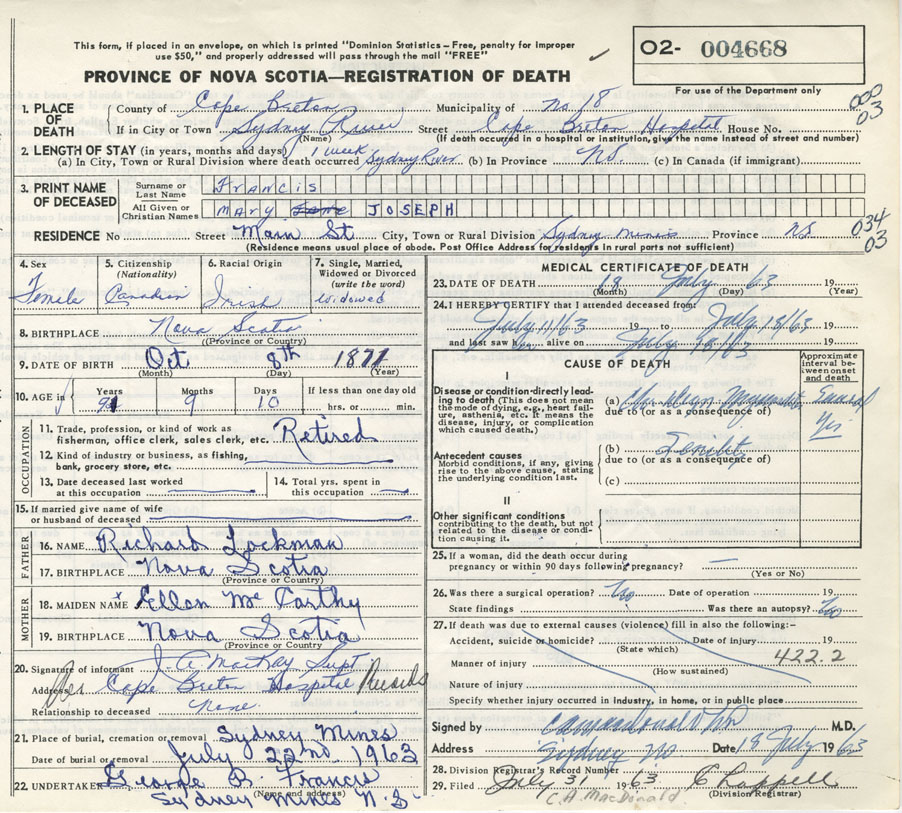 This form, if placed in an envelope, on which is printed "Dominion Statistics – Free, penalty for improper
use $50," and properly addressed will pass through the mail "FREE"
O2- 004668
For use of the Department only
PROVINCE OF NOVA SCOTIA—REGISTRATION OF DEATH
1. PLACE OF DEATH
County of Cape Breton Municipality of No 18 000
If in City or Town Sydney River Street Cape Breton Hospital House No. 03
(Name) (If death occurred in a hospital or institution, give the name instead of street and number)
2. LENGTH OF STAY (in years, months and days)
(a) In City, Town or Rural Division where death occurred 1 week Sydney River (b) In Province NS. (c) In Canada (if immigrant)
3. PRINT NAME OF DECEASED
Surname or Last Name FRANCIS
All Given or Christian Names MARY JOSEPH
RESIDENCE No Street Main St City, Town or Rural Division Sydney Mines Province NS 034
03
(Residence means usual place of abode. Post Office Address for residents in rural parts not sufficient)
4. Sex Female
5. Citizenship (Nationality) Canadian
6. Racial Origin Irish
7. Single, Married, Widowed or Divorced (write the word) Widowed
8. BIRTHPLACE Nova Scotia
(Province or Country)
9. DATE OF BIRTH Oct 8th 1871
(Month) (Day) (Year)
10. AGE in Years 91 Months 9 Days 10 If less than one day old hrs. or min.
OCCUPATION
11. Trade, profession, or kind of work as fisherman, office clerk, sales clerk, etc. Retired
12. Kind of industry or business, as fishing, bank, grocery store, etc.
13. Date deceased last worked at this occupation
14. Total yrs. spent in this occupation
15. If married give name of wife or husband of deceased
FATHER
16. NAME Richard Lockman
17. BIRTHPLACE Nova Scotia
(Province or Country)
MOTHER
18. MAIDEN NAME Ellen McCarthy
19. BIRTHPLACE Nova Scotia
(Province or Country)
20. Signature of informant J. A. MacKay Supt
Address Cape Breton Hospital Records
Relationship to deceased None
21. Place of burial, cremation or removal Sydney Mines
Date of burial or removal July 22nd 1963
22. UNDERTAKER George B. Francis
(Name and address)
Sydney Mines N.S.
MEDICAL CERTIFICATE OF DEATH
23. DATE OF DEATH 18 July 63 19
(Month) (Day) (Year)
24. I HEREBY CERTIFY that I attended deceased from:
July 11/63 19 to July 18/63
and last saw her alive on July 18/63 19
CAUSE OF DEATH
Approximate interval between onset and death
I
Disease or condition directly leading to death (This does not mean the mode of dying, e.g., heart failure, asthenia, etc. It means the disease, injury, or complication which caused death.)
(a)
due to (or as a consequence of)
Antecedent causes
Morbid conditions, if any, giving rise to the above cause, stating the underlying condition last.
(b)
due to (or as a consequence of)
(c)
II
Other significant conditions
contributing to the death, but not related to the disease or condition causing it.
25. If a woman, did the death occur during pregnancy or within 90 days following pregnancy? —
(Yes or No)
26. Was there a surgical operation? No Date of operation 19
State findings Was there an autopsy? No
27. If death was due to external causes (violence) fill in also the following:—
Accident, suicide or homicide? Date of injury 19
(State which)
422.2
Manner of injury
(How sustained)
Nature of injury
Specify whether injury occurred in industry, in home, or in public place
Signed by M.D.
Address Sydney NS Date 18 July 1963
28. Division Registrar's Record Number
29. Filed July 31 1963
C.A. MacDonald (Division Registrar)